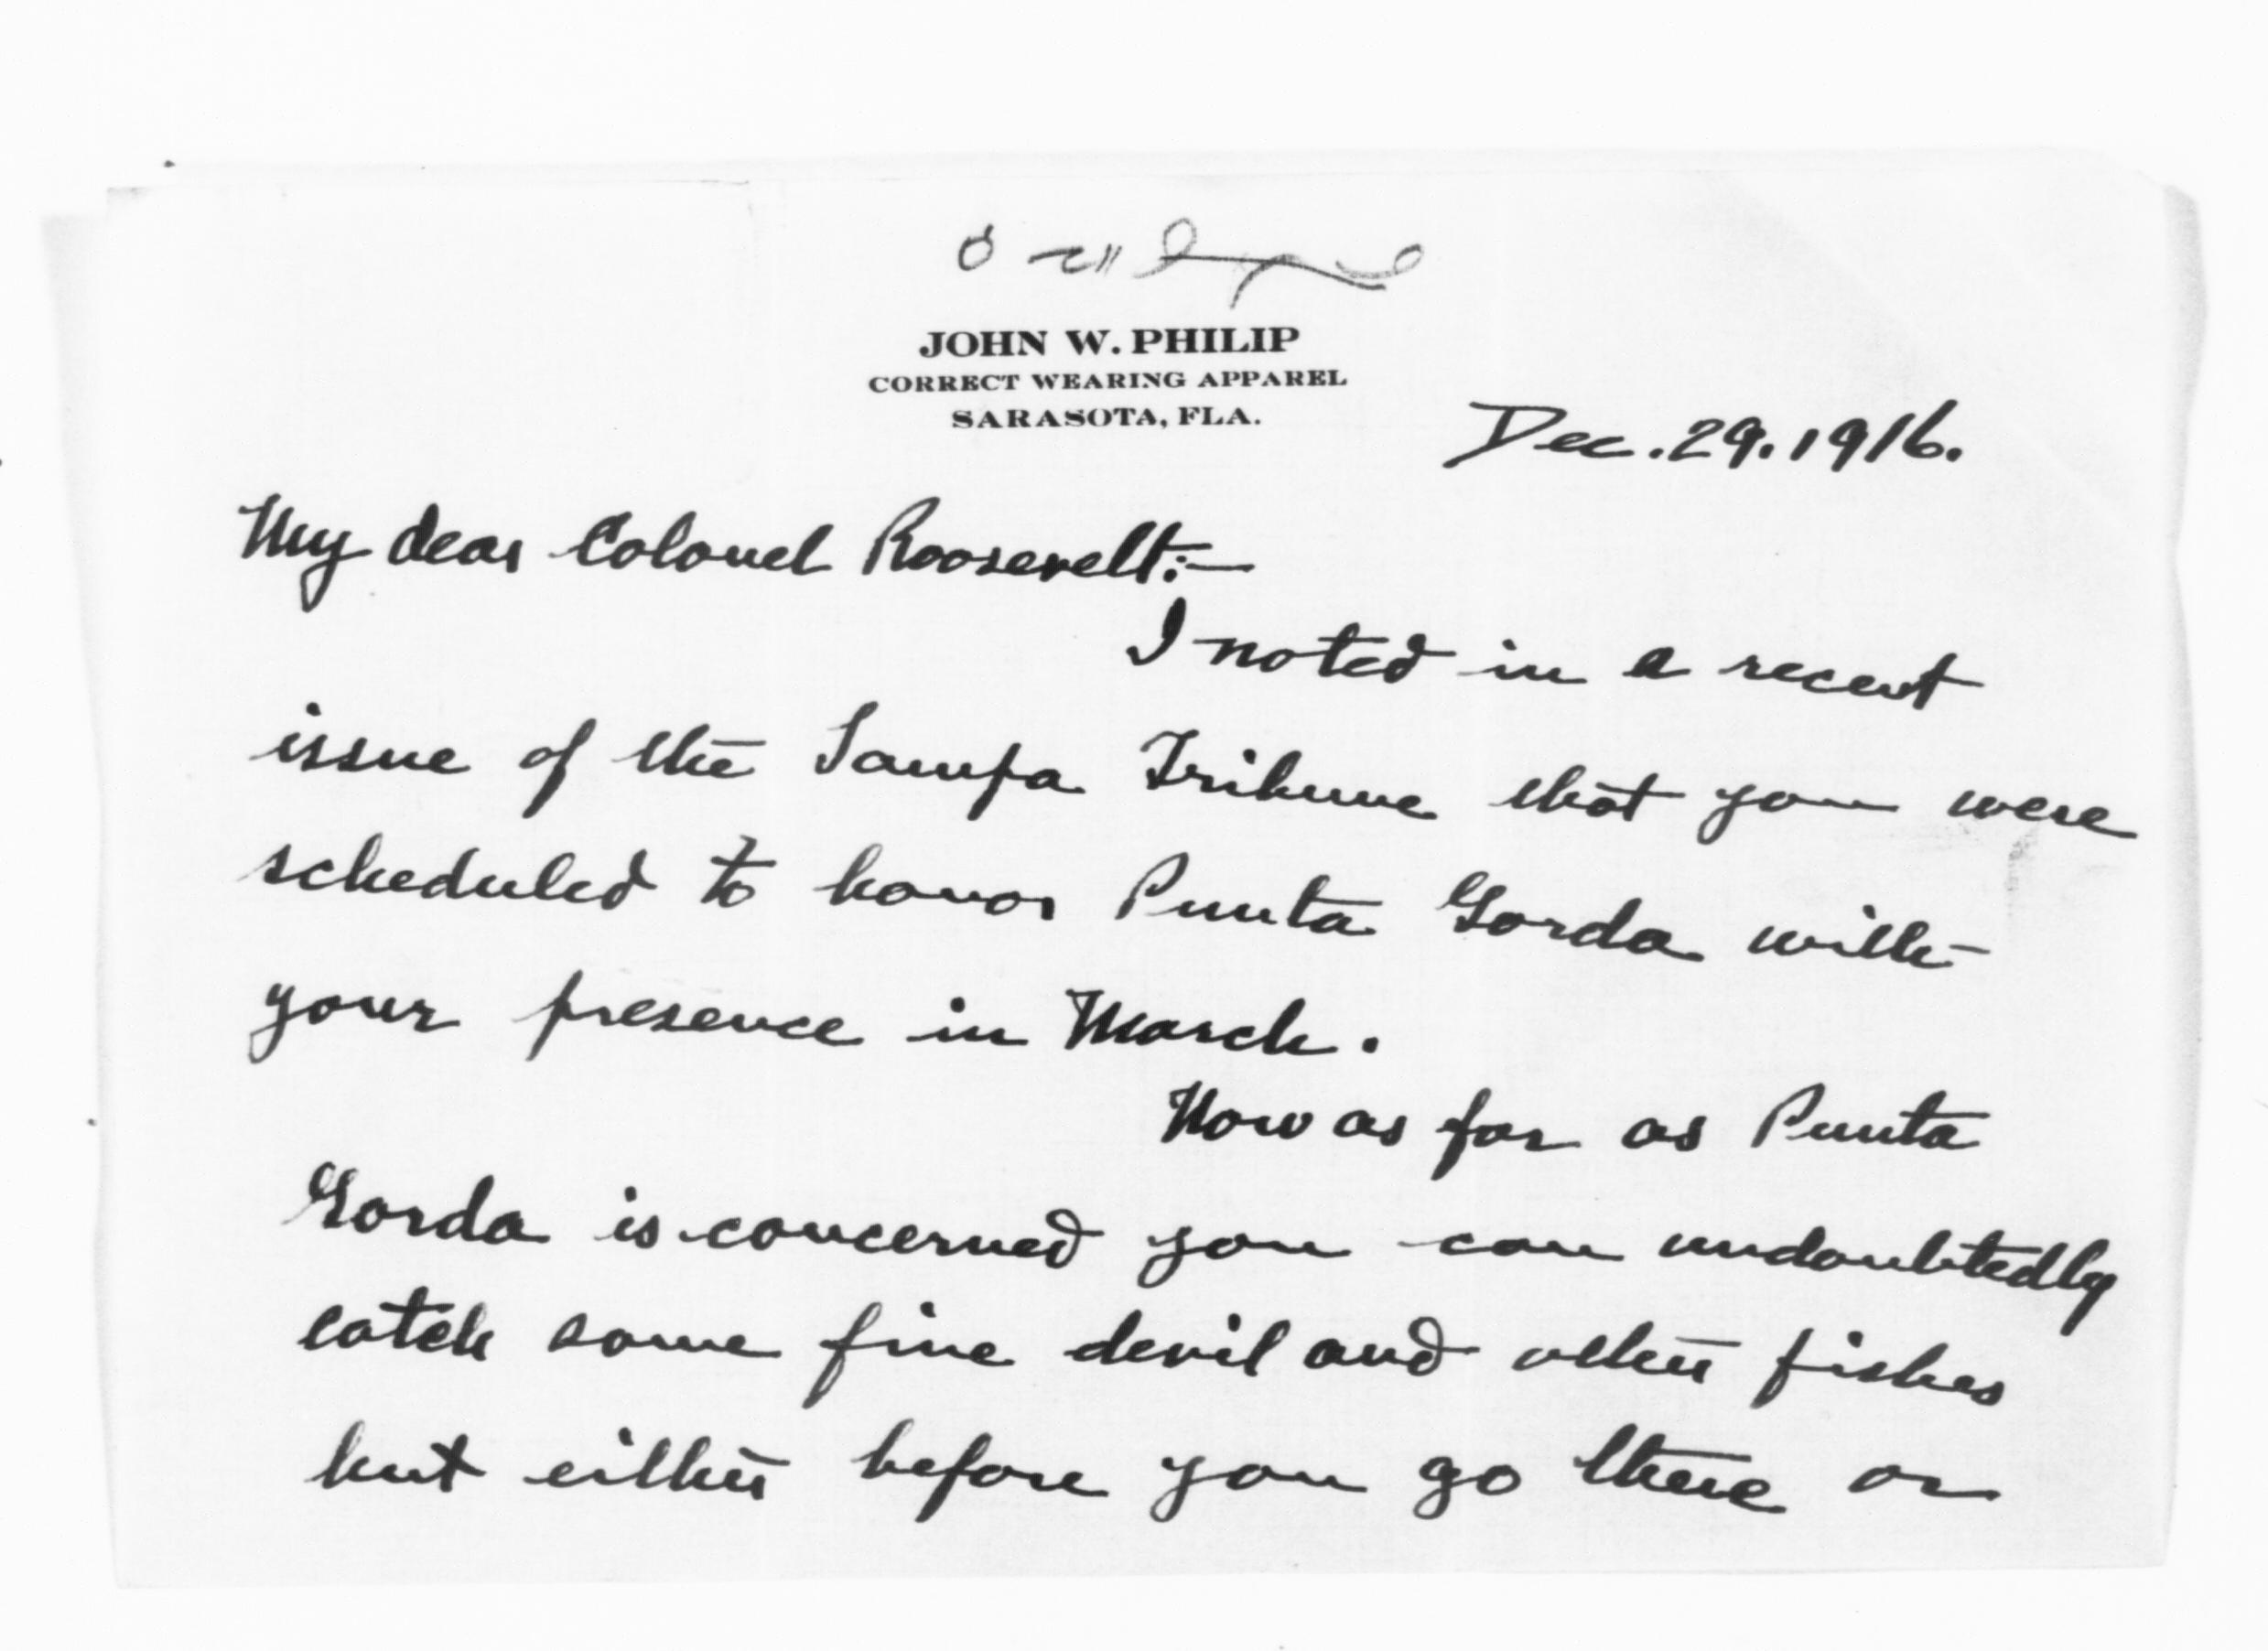 JOHN W. PHILIP
CORRECT WEARING APPAREL
SARASOTA, FLA.
Dec. 29. 1916.
My dear Colonel Roosevelt:—
I noted in a recent
issue of the Tampa Tribune that you were
scheduled to honor Punta Gorda with
your presence in March.
Now as far as Punta
Gorda is concerned you can undoubtedly
catch some fine devil and other fishes
but either before you go there or